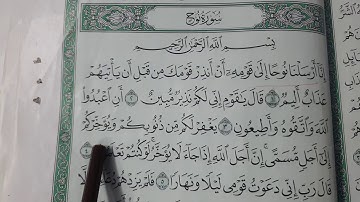 سورة نوح
بِسْمِ اللَّهِ الرَّحْمَٰنِ الرَّحِيمِ
إِنَّا أَرْسَلْنَا نُوحًا إِلَىٰ قَوْمِهِ أَنْ أَنذِرْ قَوْمَكَ مِن قَبْلِ أَن يَأْتِيَهُمْ
عَذَابٌ أَلِيمٌ ١ قَالَ يَٰقَوْمِ إِنِّي لَكُمْ نَذِيرٌ مُّبِينٌ ٢ أَنِ اعْبُدُوا
اللَّهَ وَاتَّقُوهُ وَأَطِيعُونِ ٣ يَغْفِرْ لَكُم مِّن ذُنُوبِكُمْ وَيُؤَخِّرْكُمْ
إِلَىٰ أَجَلٍ مُّسَمًّى إِنَّ أَجَلَ اللَّهِ إِذَا جَاءَ لَا يُؤَخَّرُ لَوْ كُنتُمْ ٤
قَالَ رَبِّ إِنِّي دَعَوْتُ قَوْمِي لَيْلًا وَنَهَارًا ٥ فَلَمْ يَزِدْهُمْ